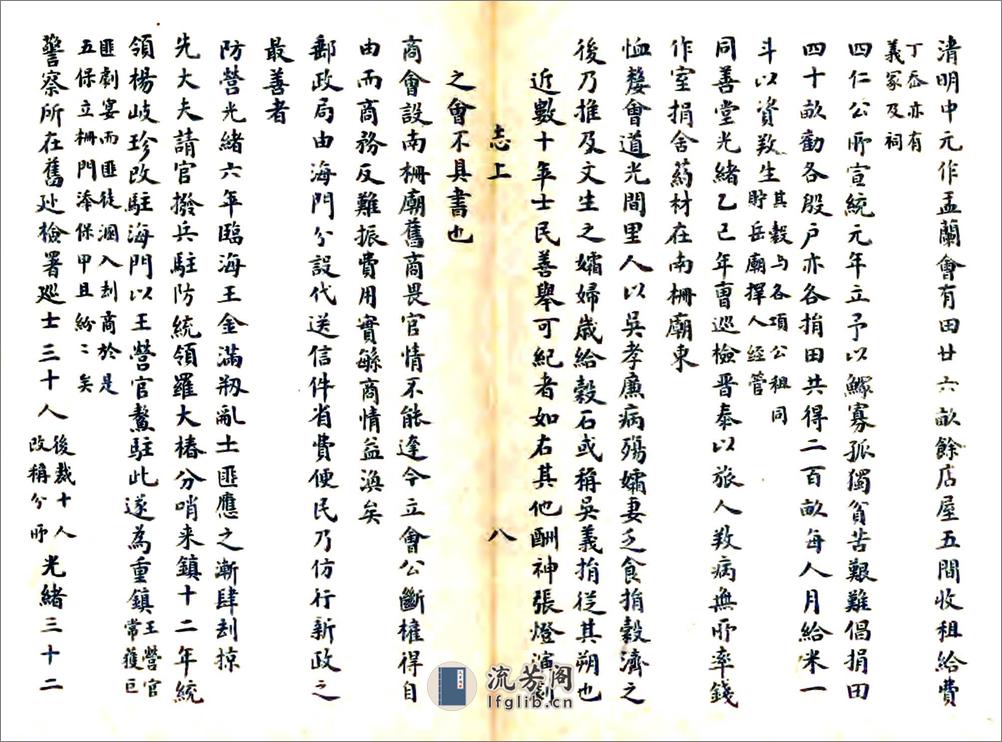 清明中元作盂蘭會有田廿六畝餘店屋五間收租給費
丁岙亦有
義冢及祠
四仁公所宣統元年立予以鰥寡孤獨貧苦艱難倡捐田
四十畝勸各殷戶亦各捐田共得二百畝每人月給米一
斗以資救生
其穀与各項公租同
貯岳廟擇人經管
同善堂光緒乙己年曹巡檢晋泰以旅人救病無所率錢
作室捐舍葯材在南栅廟東
恤嫠會道光間里人以吳孝廉病殤孀妻乏食捐穀濟之
後乃推及文生之孀婦歲給穀石或稱吳義捐従其朔也
近數十年士民善舉可紀者如右其他酬神張燈演劇
之會不具書也
志上
八
商會設南栅廟舊商畏官情不能達今立會公斷權得自
由而商務反難振費用實緐商情益渙矣
郵政局由海門分設代送信件省費便民乃仿行新政之
最善者
防營光緒六年臨海王金滿剏亂土匪應之漸肆刦掠
先大夫請官撥兵駐防統領羅大椿分哨来鎮十二年統
領楊岐珍改駐海門以王營官鰲駐此遂為重鎮
王營官
常獲巨
匪劇宴而匪徒溷入刦商於是
五保立栅門添保甲且紛〻矣
警察所在舊巡檢署巡士三十人
後裁十人
改稱分所
光緒三十二
流芳阁
lfglib.cn